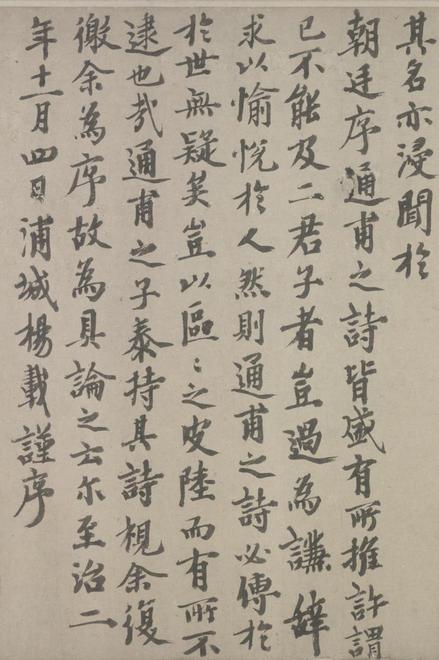 其名亦浸聞於
朝廷序通甫之詩皆盛有所推許謂
已不能及二君子者豈過為謙辭
求以愉悅於人然則通甫之詩必傳於
於世無疑矣豈以區〻之皮陸而有所不
逮也哉通甫之子泰持其詩視余復
徵余為序故為具論之云尔至治二
年十一月四日浦城楊載謹序